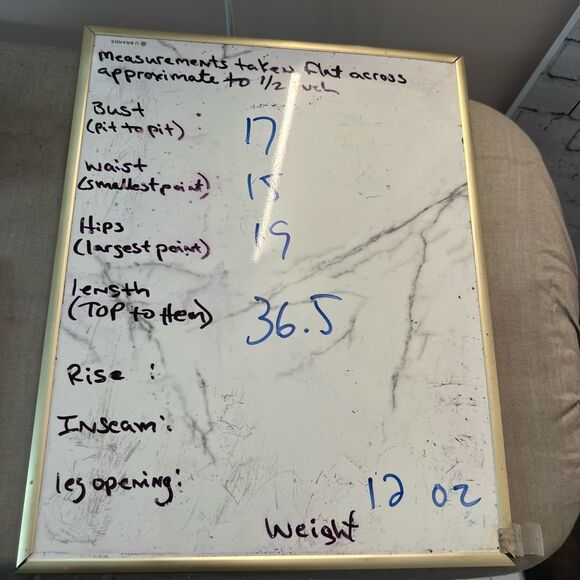 U BRANDS
measurements taken flat across
approximate to 1/2 inch
Bust
(pit to pit) : 17
waist
(smallest point) 15
Hips
(largest point) 19
length
(TOP to Hem) 36.5
Rise :
Inseam:
leg opening:
12 oz
Weight